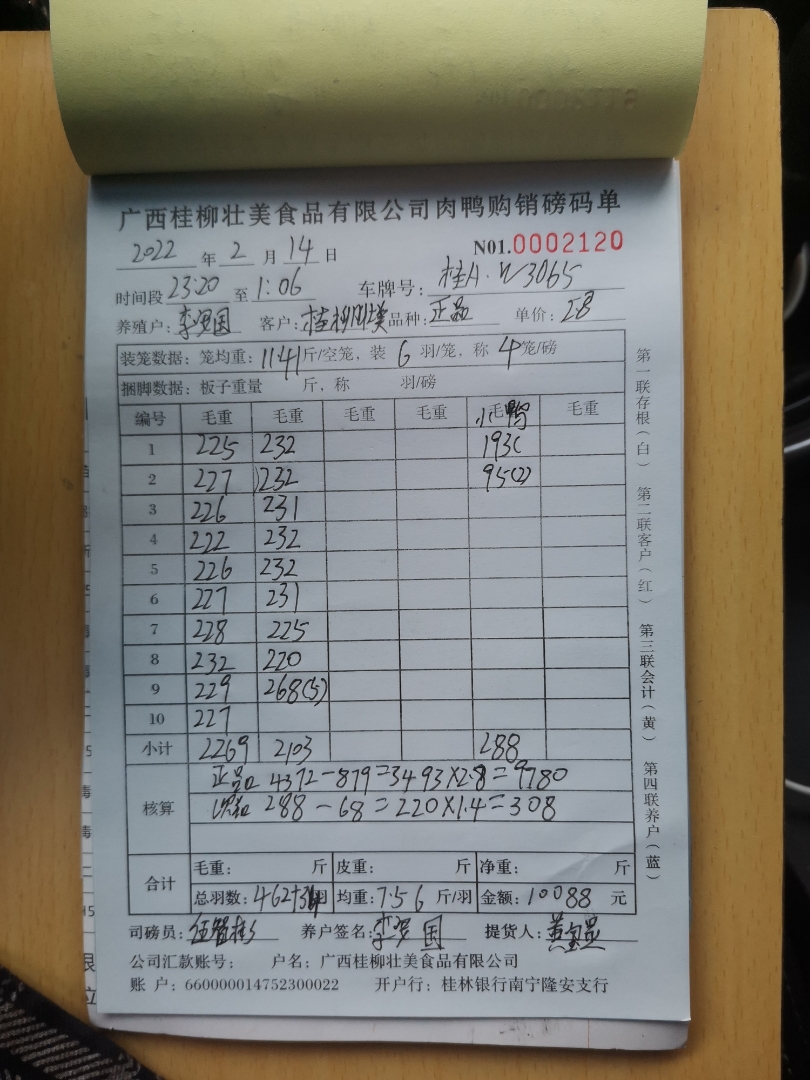 广西桂柳壮美食品有限公司肉鸭购销磅码单
2022 年 2 月 14 日 N01.0002120
时间段 23:20 至 1:06 车牌号: 桂A·W3065
养殖户: 李罗国 客户: 桂柳 品种: 正品 单价: 2.8
装笼数据: 笼均重: 11.41 斤/空笼, 装 6 羽/笼, 称 4 笼/磅
捆脚数据: 板子重量 斤, 称 羽/磅
编号 毛重 毛重 毛重 毛重 小鸭 毛重
1 225 232 193(
2 227 232 95(2)
3 226 231
4 222 232
5 226 232
6 227 231
7 228 225
8 232 220
9 229 268(5)
10 227
小计 2269 2103 288
核算
正品 4372-879=3493×2.8=9780
次品 288-68=220×1.4=308
合计
毛重: 斤 皮重: 斤 净重: 斤
总羽数: 462+34羽 均重: 7.56 斤/羽 金额: 10088 元
司磅员: 养户签名: 李罗国 提货人:
公司汇款账号: 户名: 广西桂柳壮美食品有限公司
账 户: 660000014752300022 开户行: 桂林银行南宁隆安支行
第一联存根(白) 第二联客户(红) 第三联会计(黄) 第四联养户(蓝)